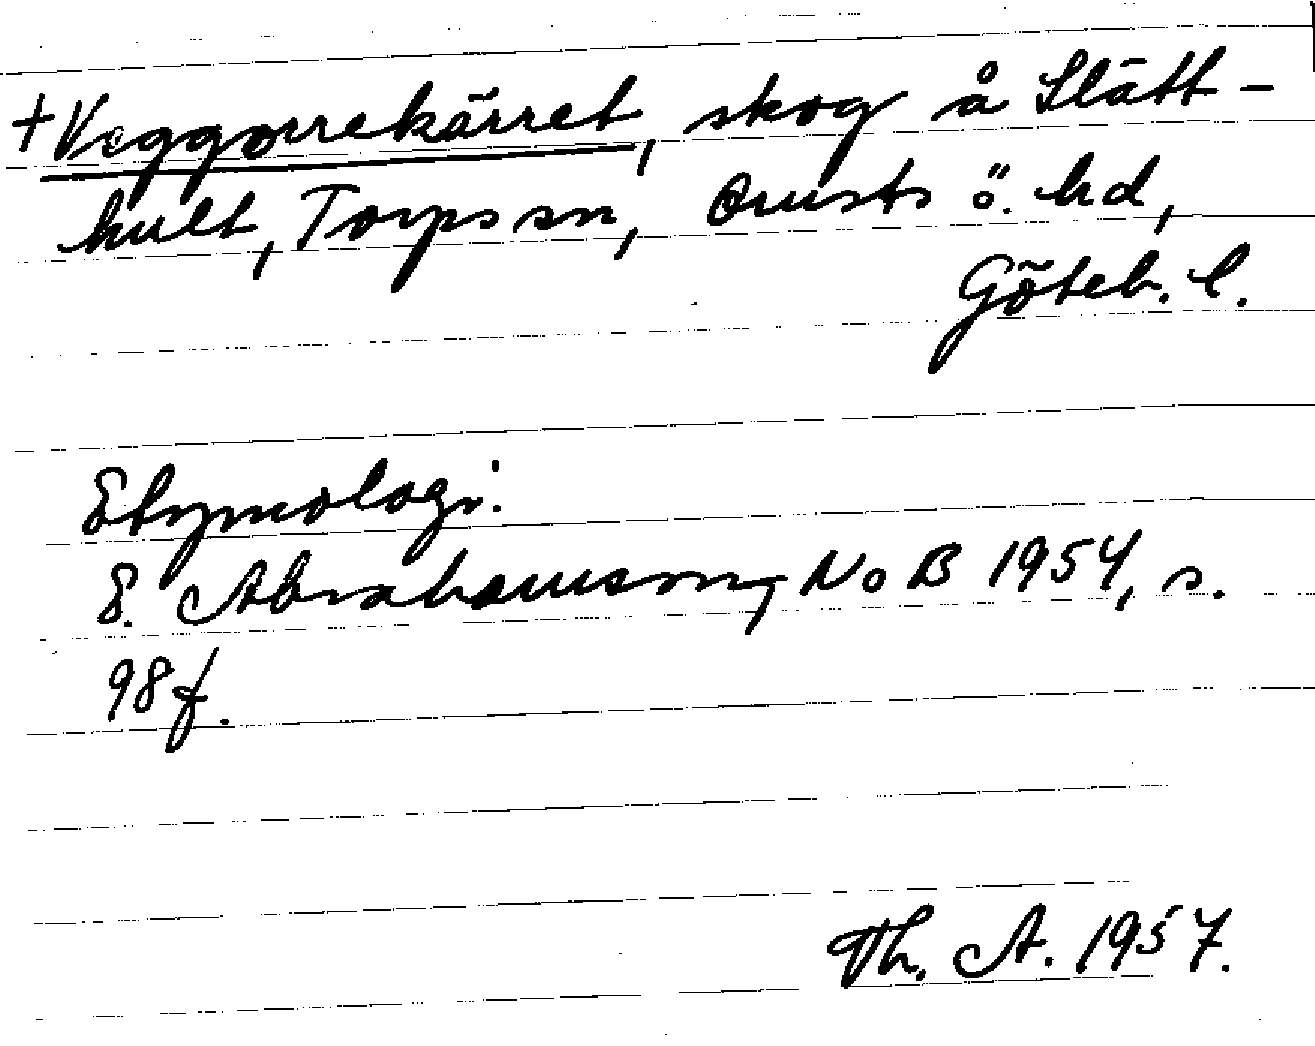 +Veggorrekärret, skog å Slätt-
hult, Torps sn, Orusts ö. hd,
Göteb. l.
Etymologi:
E. Abrahamson, NoB 1954, s.
98 f.
Th. A. 1957.